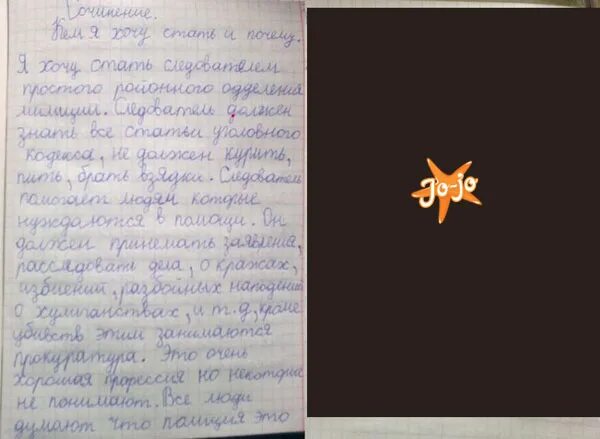 Сочинение.
Кем я хочу стать и почему.
Я хочу стать следователем
простого районного одделения
милиции. Следователь должен
знать все статьи уголовного
кодекса, не должен курить,
пить, брать взядки. Следователь
помогает людям которые
нуждаются в помощи. Он
должен принемать заявления,
расследовать дела, о кражах,
избиений, разбойных наподений
о хулиганствах, и т.д, кроме
убивств этим занимаются
прокуратура. Это очень
хорошая профессия но некоторые
не понимают. Все люди
думают что полиция это
Jo-jo